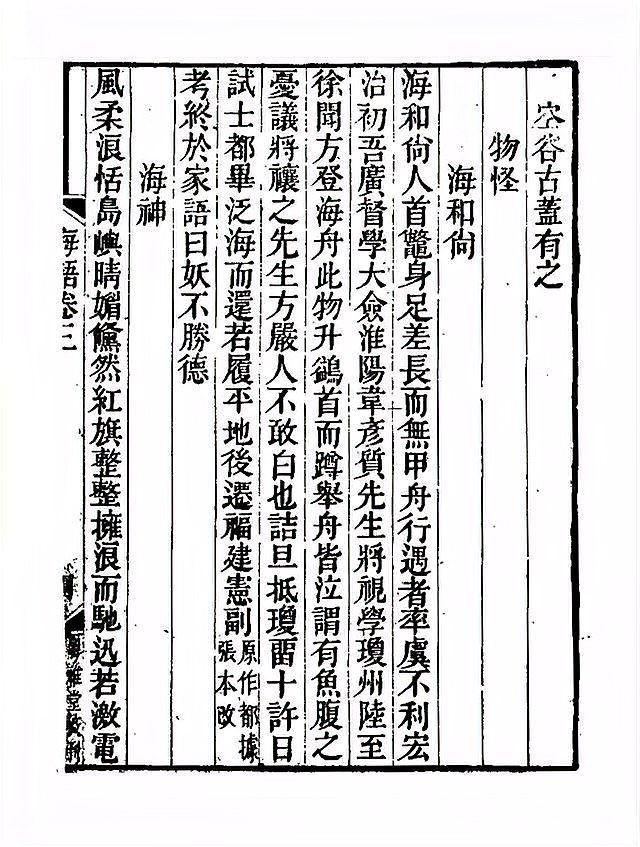 空谷古蓋有之
物怪
海和尙
海和尙人首鼈身足差長而無甲舟行遇者率虞不利宏
治初吾廣督學大僉淮陽韋彥質先生將視學瓊州陸至
徐聞方登海舟此物升鷁首而蹲舉舟皆泣謂有魚腹之
憂議將禳之先生方嚴人不敢白也詰旦抵瓊畱十許日
試士都畢泛海而還若履平地後遷福建憲副原作都據張本改
考終於家語曰妖不勝德
海神
風柔浪恬島嶼晴媚儵然紅旗整整擁浪而馳迅若激電
海語卷三